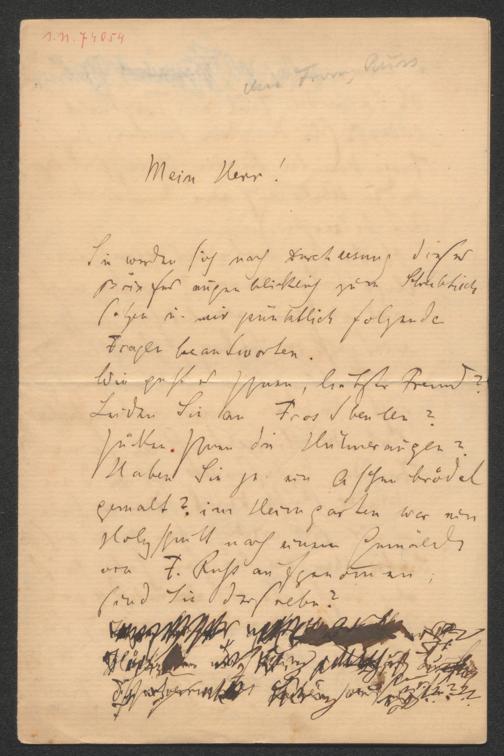 I.N. 74054
An Franz Russ.
Mein Herr!
Sie werden sich nach Durchlesung dieses
Briefes augenblicklich zum Schreibtisch
setzen u. mir pünktlich folgende
Fragen beantworten.
Wie geht es Ihnen, liebster Freund?
Leiden Sie an Frostbeulen?
Jücken Ihnen die Hühneraugen?
Haben Sie je ein Aschenbrödel
gemalt? im Heimgarten war ein
Holzschnitt nach einem Gemälde
von F. Russ aufgenommen,
sind Sie derselbe?